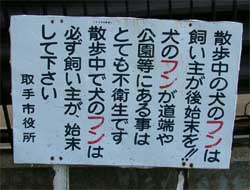 散歩中の犬のフンは
飼い主が後始末を!!
犬のフンが道端や
公園等にある事は
とても不衛生です
散歩中で犬のフンは
必ず飼い主が、始末
して下さい
取手市役所